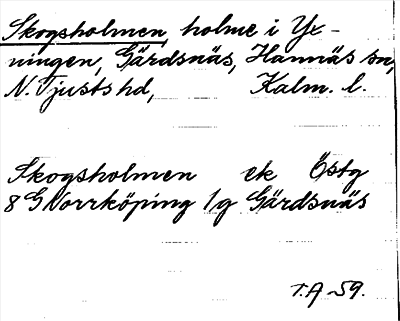 Skogsholmen, holme i Yx-
ningen, Gärdsnäs, Hannäs sn,
N. Tjusts hd, Kalm. l.
Skogsholmen ek Östg
8 G Norrköping 1/g Gärdsnäs
T.A -59.